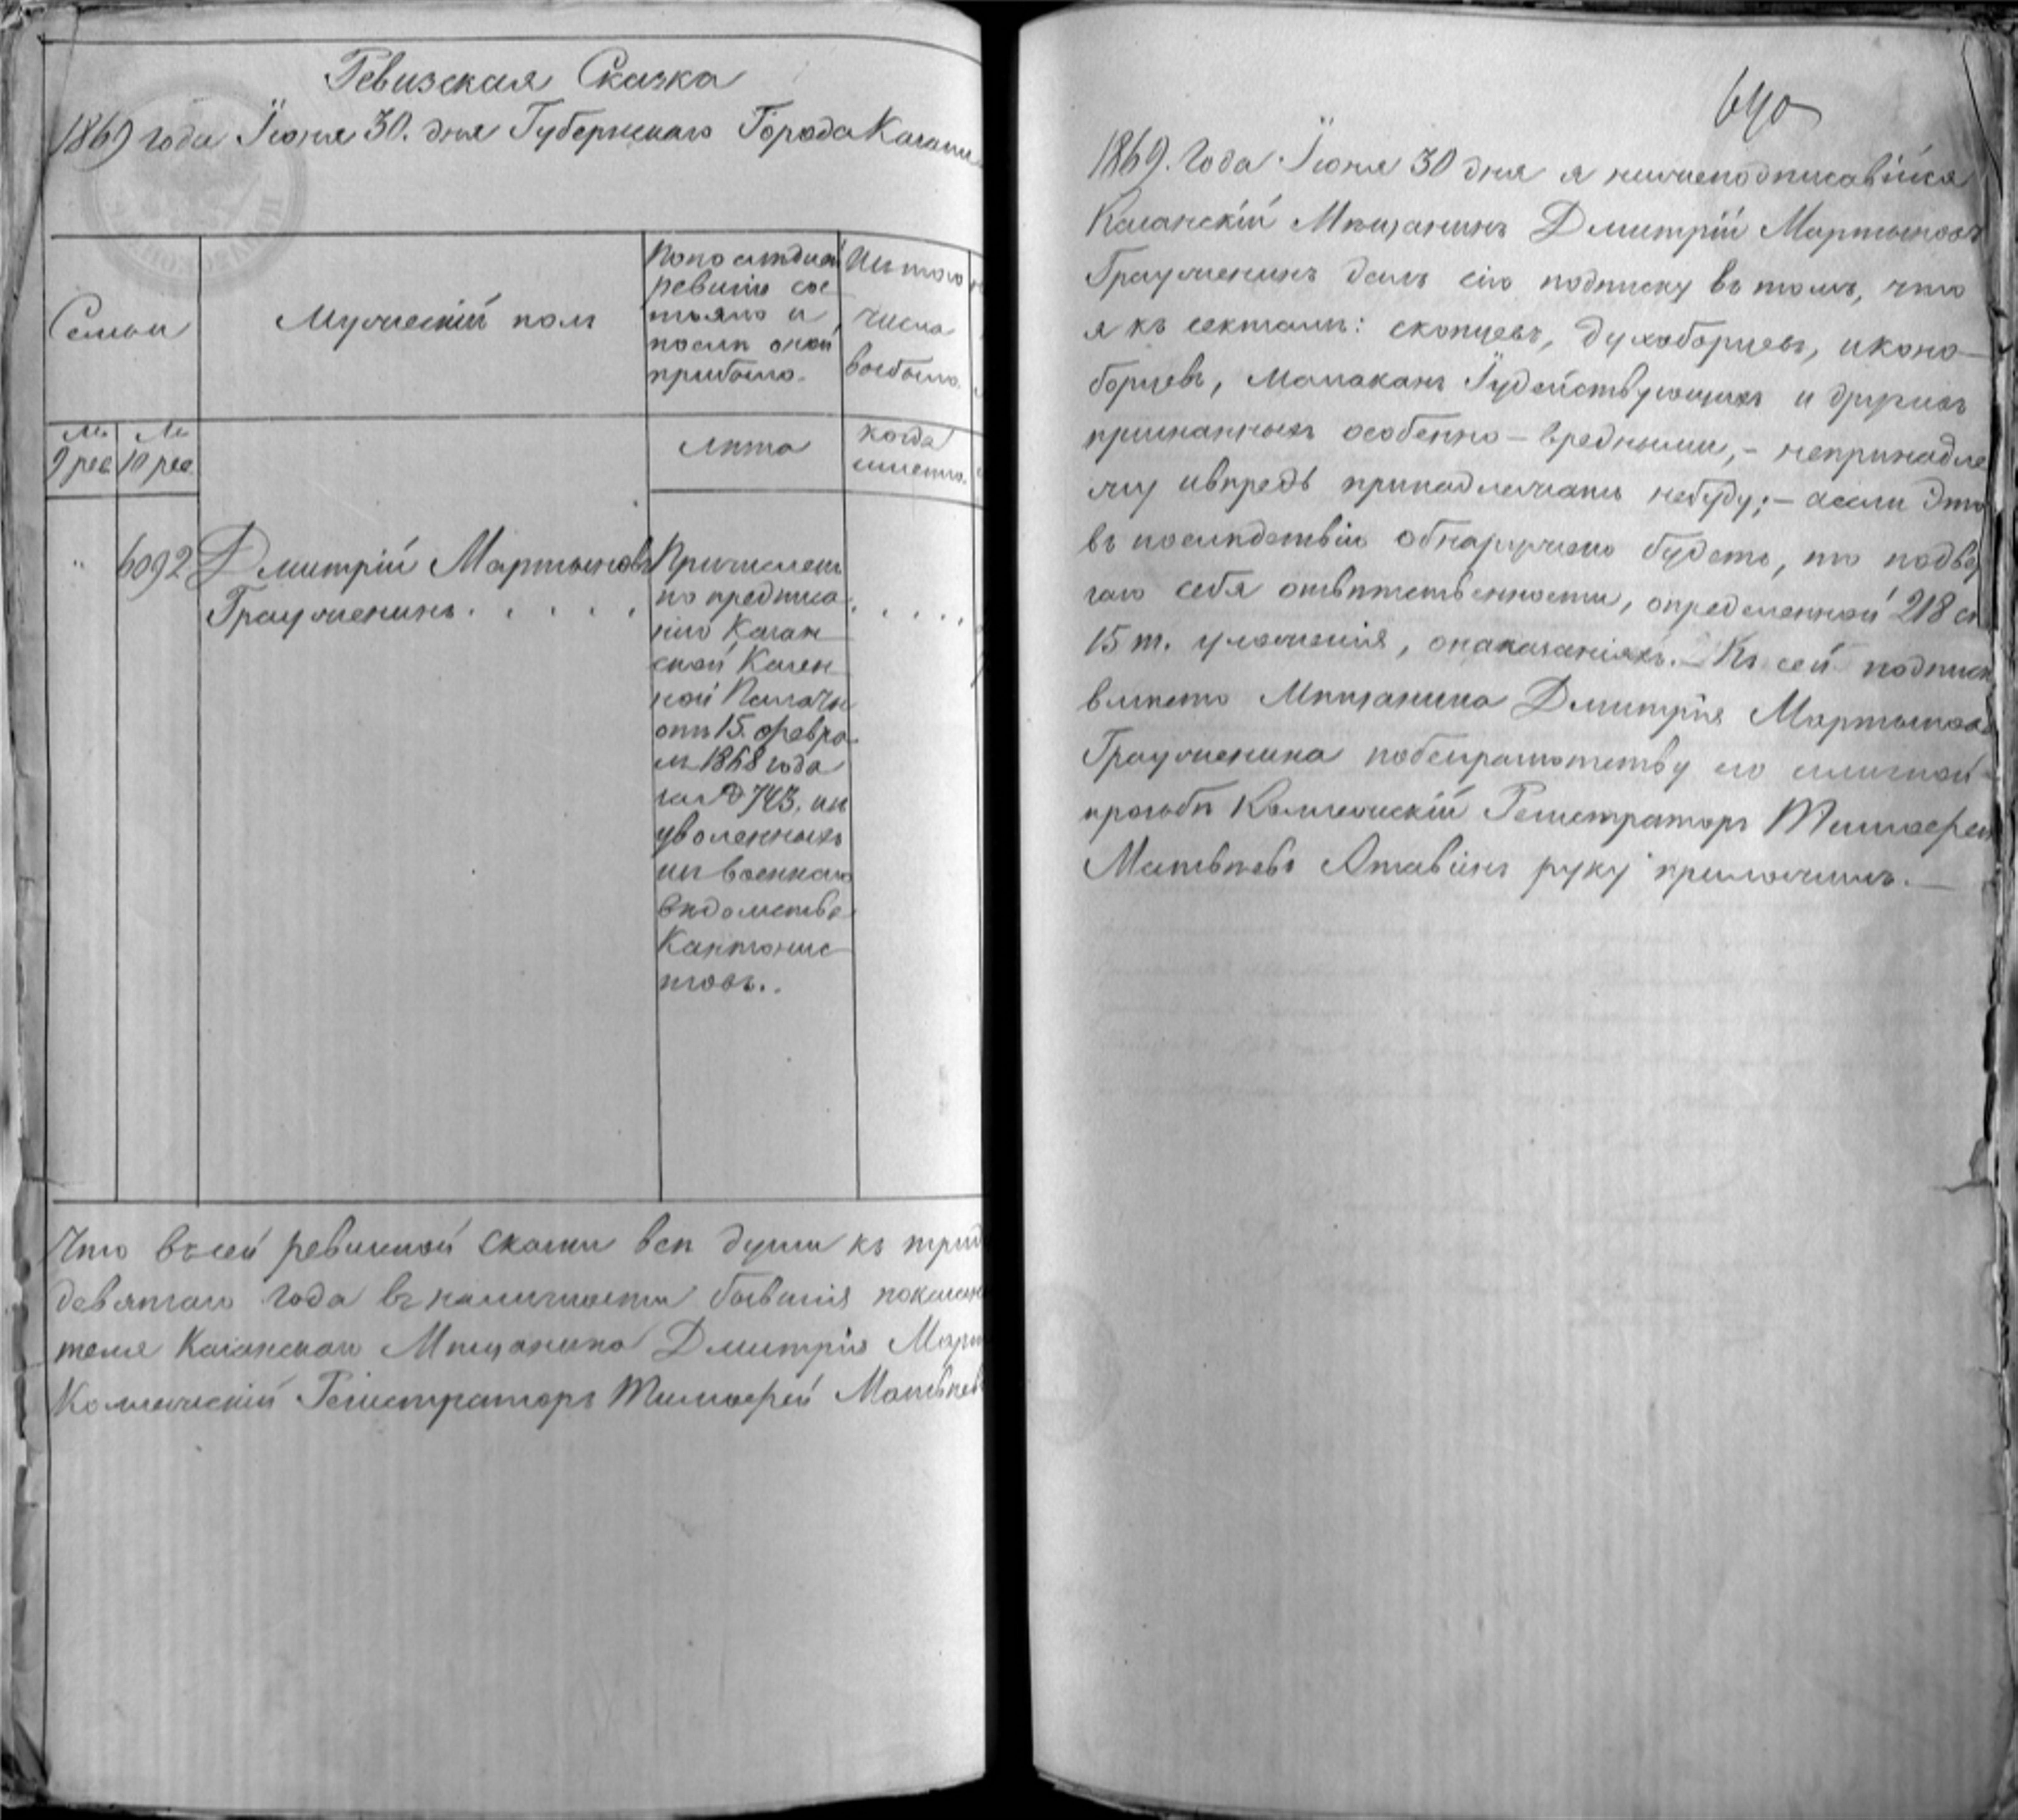 Ревизская Сказка
1869 года Іюня 30. дня Губернскаго Города Казани
Семьи
Мужескій полъ
По последней
ревизіи сос
тояло и
после оной
прибыло.
Изъ того
числа
выбыло.
№
9 рев.
№
10 рев.
Лѣта
когда
именно.
"
6092
Дмитрій Мартыновъ
Грауженинъ . . . . .
Причисленъ
по предписа
нію Казан
ской Казен
ной Палаты
отъ 15. февра
ля 1868 года
за № 743, изъ
уволенныхъ
изъ военнаго
вѣдомства
Кантонис
товъ..
Что въ сей ревизской сказки всѣ души къ трид
девятаго года въ наличности бывшія показан
теля Казанскаго Мѣщанина Дмитрія Март
Коллежскій Регистраторъ Тимофей Матвѣев
690
1869. Года Іюня 30 дня я нижеподписавшійся
Казанскій Мѣщанинъ Дмитрій Мартыновъ
Грауженинъ далъ сію подписку въ томъ, что
я къ сектамъ: скопцевъ, духоборцевъ, иконо-
борцевъ, молоканъ Іудействующихъ и другихъ
признанныхъ особенно – вредными, – непринадле
жу ивпредь принадлежать небуду; – аесли это
въ послѣдствіи обнаружено будетъ, то подвер
гаю себя отвѣтственности, определенной 218 ст
15 т. уложенія, онаказаніяхъ. – Къ сей подписк
вмѣсто Мѣщанина Дмитрія Мартынова
Грауженина побезграмотству его иличной
прозьбѣ Коллежскій Регистраторъ Тимофей
Матвѣевъ Атавинъ руку приложилъ. –